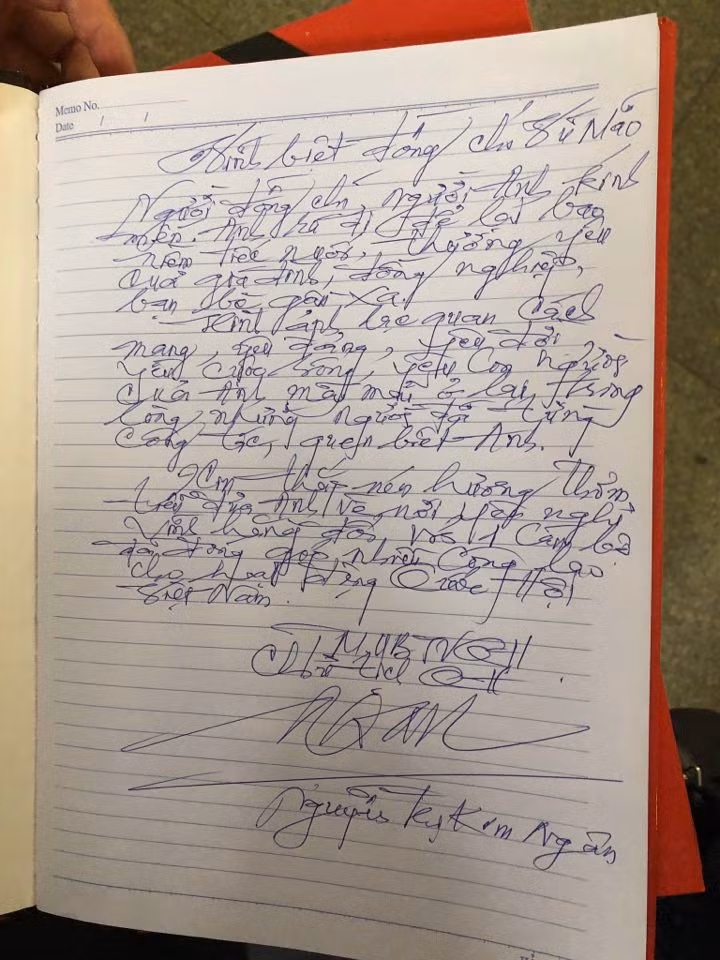 Memo No.
Date / /
Vĩnh biệt đồng chí Vũ Mão
Người đồng chí, người Anh kính
mến. Anh ra đi để lại bao
niềm tiếc nuối, thương yêu
của gia đình, đồng nghiệp,
bạn bè gần xa.
Hình ảnh lạc quan Cách
mạng, yêu đảng, yêu đời,
yêu cuộc sống, yêu con người
của Anh mãi mãi ở lại trong
lòng những người đã từng
công tác, quen biết Anh.
Xin thắp nén hương thơm
tiễn đưa Anh về nơi yên nghỉ
Vĩnh hằng đời, với 1 Cán bộ
đã đóng góp nhiều Công lao
cho hoạt động Quốc Hội
Việt Nam.
TM UBTVQH
Chủ tịch QH
Ngân
Nguyễn Thị Kim Ngân